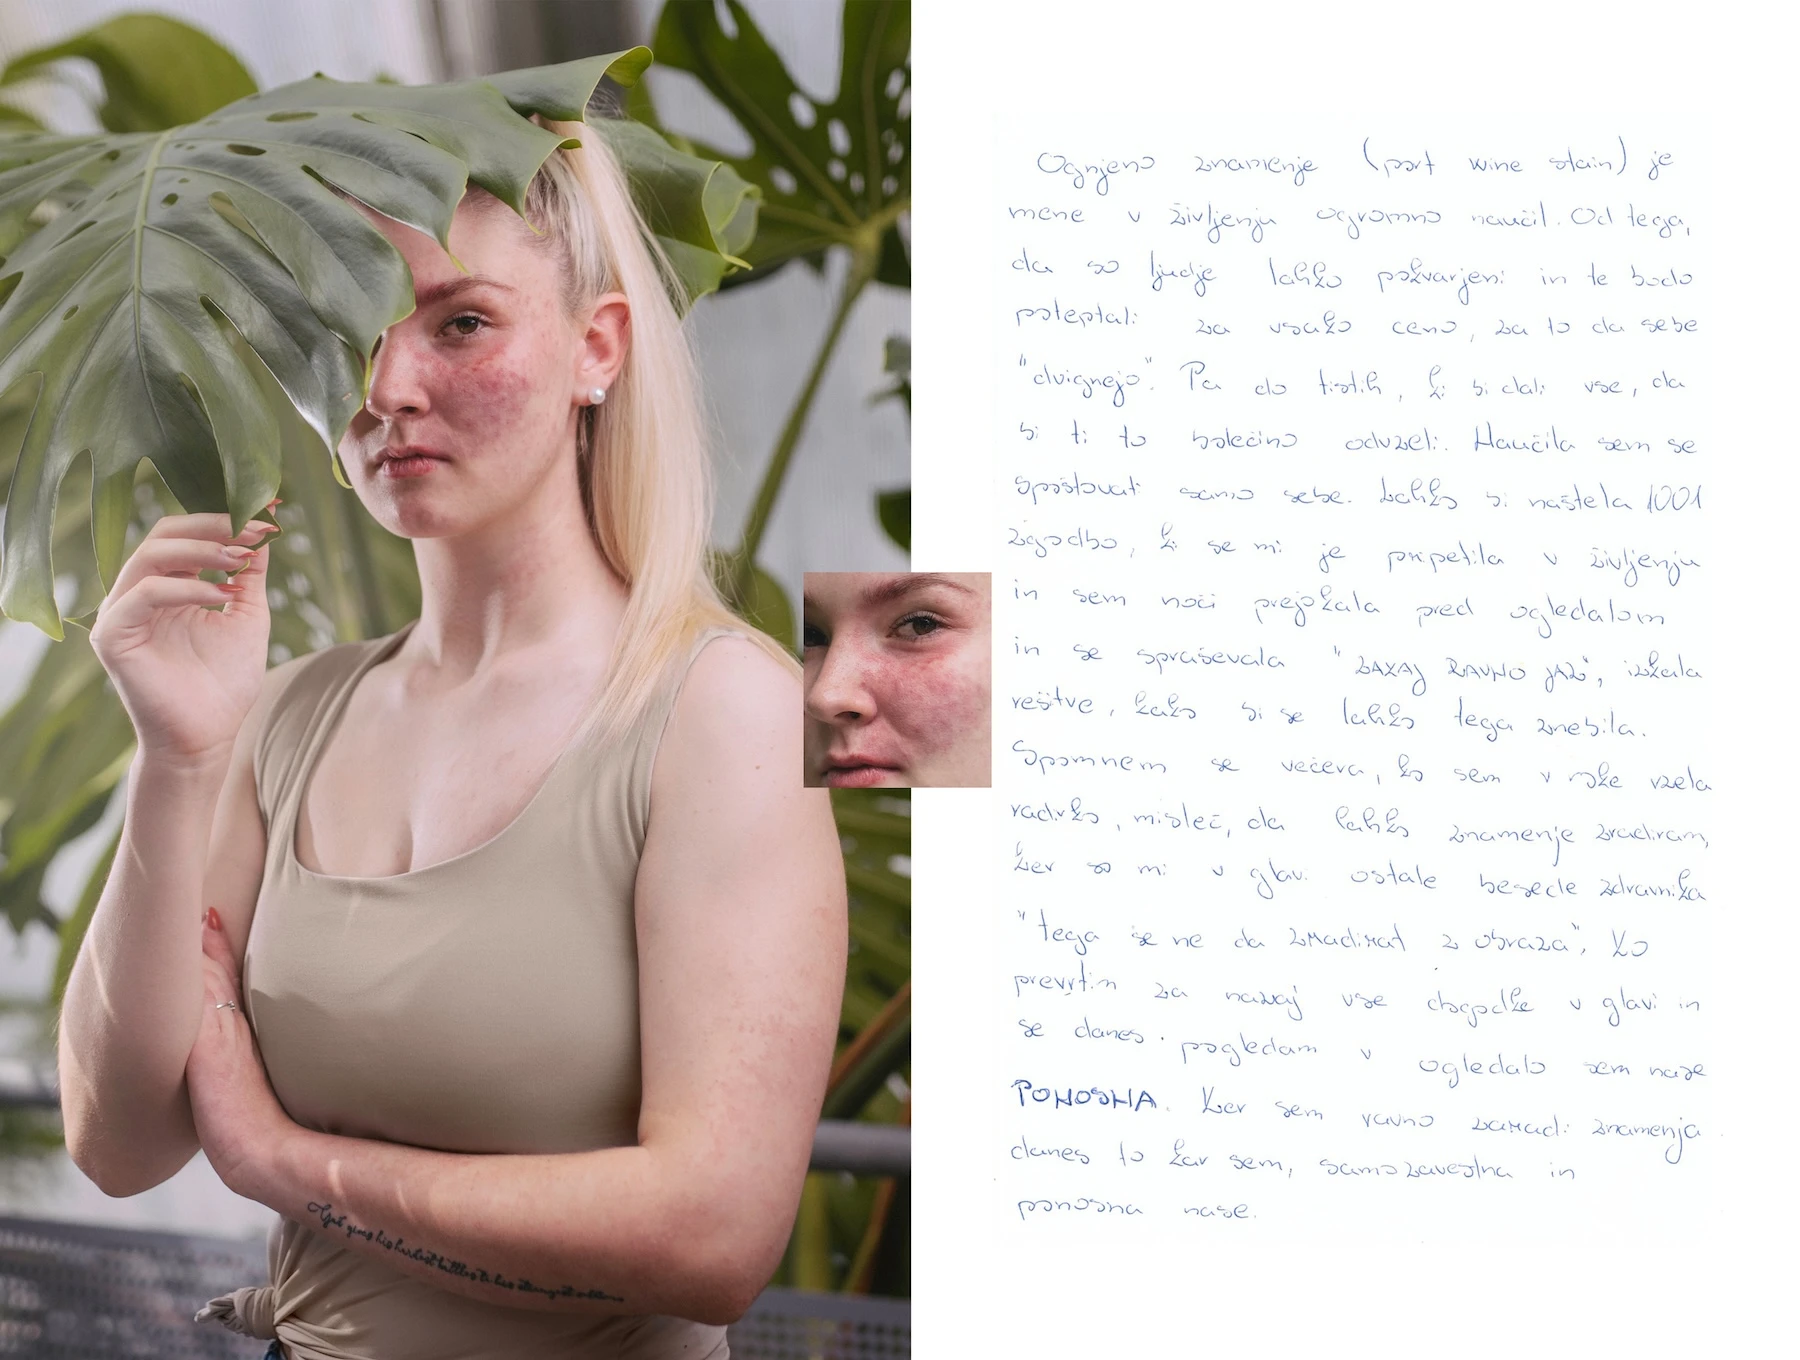 God gives his hardest battles to his strongest soldiers
Ognjeno znamenje (port wine stain) je
mene v življenju ogromno naučil. Od tega,
da so ljudje lahko pokvarjeni in te bodo
poteptali za vsako ceno, za to da sebe
"dvignejo". Pa do tistih, ki bi dali vse, da
bi ti to bolečino odvzeli. Naučila sem se
spoštovati samo sebe. Lahko bi naštela 1001
zgodbo, ki se mi je pripetila v življenju
in sem noči prejokala pred ogledalom
in se spraševala "ZAKAJ RAVNO JAZ", iskala
rešitve, kako bi se lahko tega znebila.
Spomnem se večera, ko sem v roke vzela
radirko, misleč, da lahko znamenje zradiram,
ker so mi v glavi ostale besede zdravnika
"tega se ne da zradirat z obraza", ko
prevrtim za nazaj vse dogodke v glavi in
se danes pogledam v ogledalo sem nase
PONOSNA. Ker sem ravno zaradi znamenja
danes to kar sem, samozavestna in
ponosna nase.